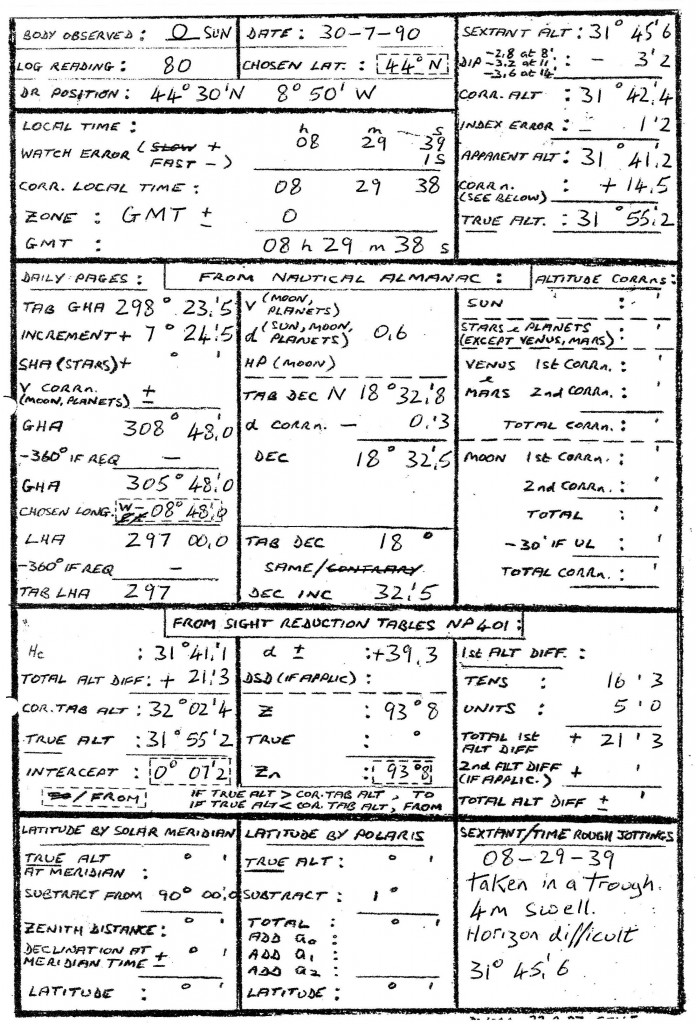 BODY OBSERVED : O SUN
DATE : 30-7-90
LOG READING : 80
CHOSEN LAT. : 44° N
DR POSITION : 44° 30'N 8° 50' W
SEXTANT ALT : 31° 45'6
DIP -2.8 at 8' -3.2 at 11' -3.6 at 14' : - 3'2
CORR. ALT : 31° 42'.4
INDEX ERROR : - 1'2
APPARENT ALT : 31° 41'.2
CORRn. (SEE BELOW) : + 14.5
TRUE ALT. : 31° 55'.2
LOCAL TIME : h m s
08 29 39
WATCH ERROR (SLOW + FAST -) 1S
CORR. LOCAL TIME : 08 29 38
ZONE : GMT ± 0
GMT : 08 h 29 m 38 s
DAILY PAGES :
FROM NAUTICAL ALMANAC :
ALTITUDE CORRNS :
TAB GHA 298° 23.'5
INCREMENT + 7° 24.'5
SHA (STARS) + ° '
V CORRn. (MOON, PLANETS) ±
GHA 308° 48.'0
-360° IF REQ -
GHA 305° 48.'0
CHOSEN LONG. W- E+ 08° 48.'0
LHA 297 00.'0
-360° IF REQ -
TAB LHA 297
V (MOON, PLANETS)
d (SUN, MOON, PLANETS) 0.6
HP (MOON)
TAB DEC N 18° 32.'8
d CORRn. - 0.'3
DEC 18° 32.'5
TAB DEC 18°
SAME/CONTRARY
DEC INC 32.'5
SUN : '
STARS & PLANETS (EXCEPT VENUS, MARS) : '
VENUS 1st CORRn. : '
&
MARS 2nd CORRn. : '
TOTAL CORRn. : '
MOON 1st CORRn. : '
2nd CORRn. : '
TOTAL : '
-30' IF UL : '
TOTAL CORRn. : '
FROM SIGHT REDUCTION TABLES NP 401 :
Hc : 31° 41.'1
TOTAL ALT DIFF : + 21.'3
COR. TAB ALT : 32° 02'4
TRUE ALT : 31° 55'2
INTERCEPT : 0° 07'2
TO/FROM
d ± : +39.3
DSD (IF APPLIC) :
Z : 93°8
TRUE : °
Zn : 93°8
IF TRUE ALT > COR. TAB ALT, TO
IF TRUE ALT < COR. TAB ALT, FROM
1st ALT DIFF. :
TENS : 16'3
UNITS : 5'0
TOTAL 1st ALT DIFF + 21'3
2nd ALT DIFF (IF APPLIC.) + '
TOTAL ALT DIFF ± '
LATITUDE BY SOLAR MERIDIAN
TRUE ALT AT MERIDIAN : ° '
SUBTRACT FROM 90° 00.'0
ZENITH DISTANCE : ° '
DECLINATION AT MERIDIAN TIME ± ° '
LATITUDE : ° '
LATITUDE BY POLARIS
TRUE ALT : ° '
SUBTRACT : 1°
TOTAL : ° '
ADD a0 :
ADD a1 :
ADD a2 :
LATITUDE : ° '
SEXTANT/TIME ROUGH JOTTINGS
08-29-39
taken in a trough.
4m swell.
Horizon difficult
31° 45.'6